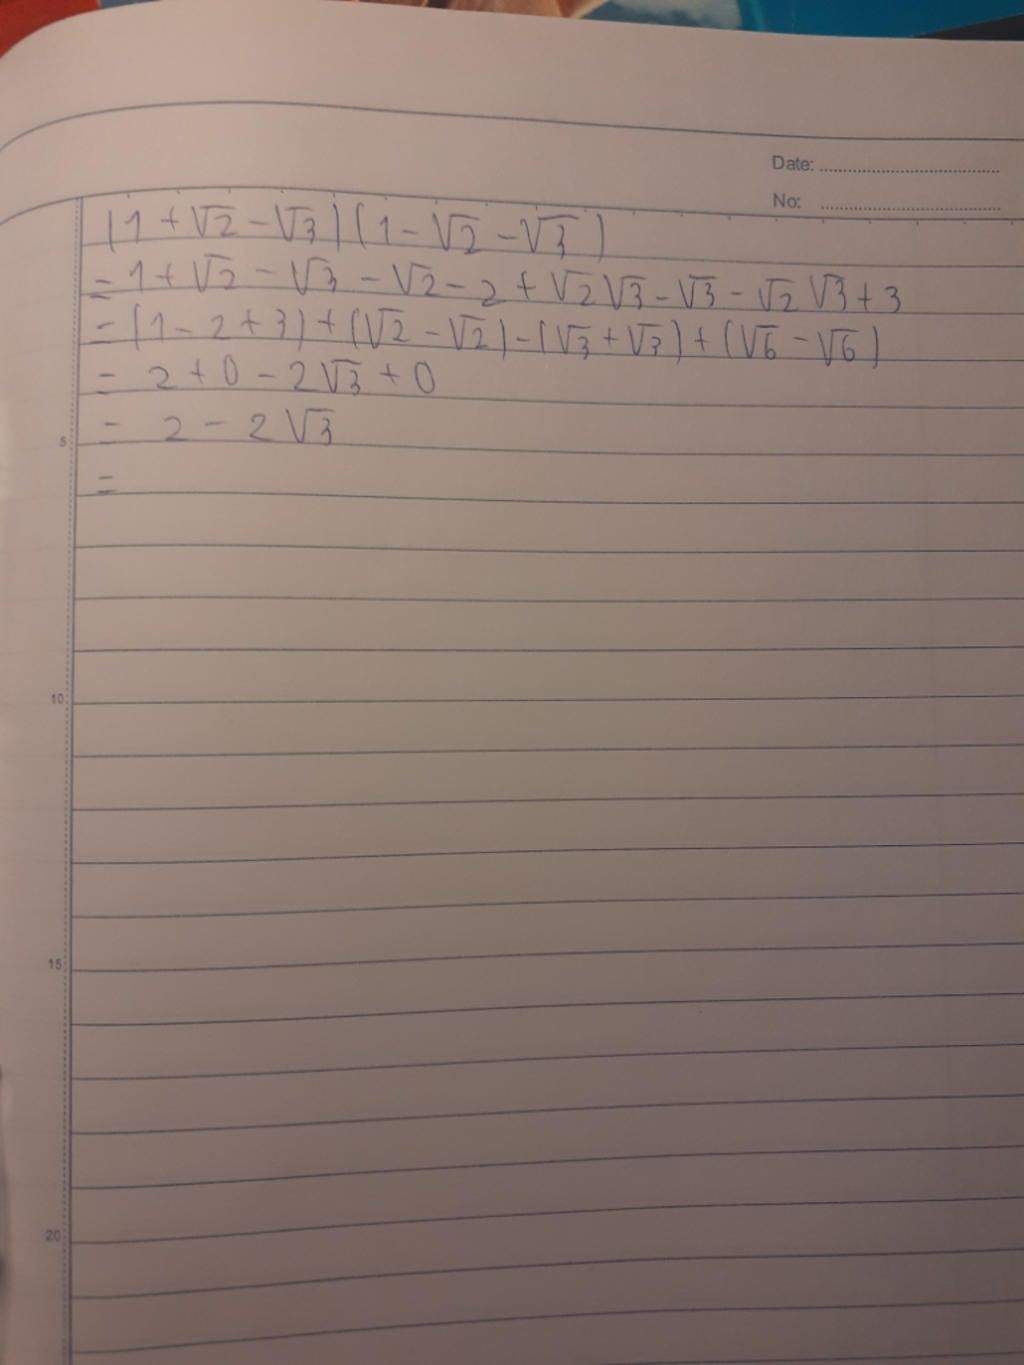 Date:
No:
(1+√2-√3)(1-√2-√3)
=1+√2-√3-√2-2+√2√3-√3-√2√3+3
=(1-2+3)+(√2-√2)-(√3+√3)+(√6-√6)
= 2+0-2√3+0
= 2-2√3
5
=
10
15
20